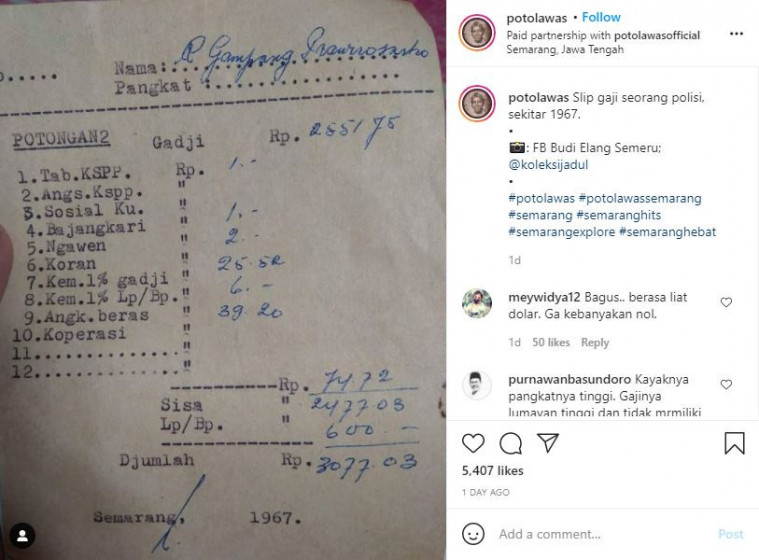 Nama:...R Gampang Prawirosastro
Pangkat :..............
POTONGAN2 Gadji Rp. 2551 75
1.Tab.KSPP. Rp. 1.-
2.Angs.Kspp. "
3.Sosial Ku. " 1.-
4.Bajangkari " 2.-
5.Ngawen "
6.Koran " 25.52
7.Kem.1% gadji " 6.-
8.Kem.1% Lp/Bp. "
9.Angk.beras " 39.20
10.Koperasi "
11................"
12................"
Rp. 74.72
Sisa " 2477.03
Lp/Bp. " 600.-
Djumlah Rp. 3077.03
Semarang, 1967.
potolawas • Follow
Paid partnership with potolawasofficial
Semarang, Jawa Tengah
potolawas Slip gaji seorang polisi,
sekitar 1967.
•
📷: FB Budi Elang Semeru;
@koleksijadul
•
#potolawas #potolawassemarang
#semarang #semaranghits
#semarangexplore #semaranghebat
1d
meywidya12 Bagus.. berasa liat
dolar. Ga kebanyakan nol.
1d 50 likes Reply
purnawanbasundoro Kayaknya
pangkatnya tinggi. Gajinya
lumayan tinggi dan tidak mrmiliki
5,407 likes
1 DAY AGO
Add a comment... Post